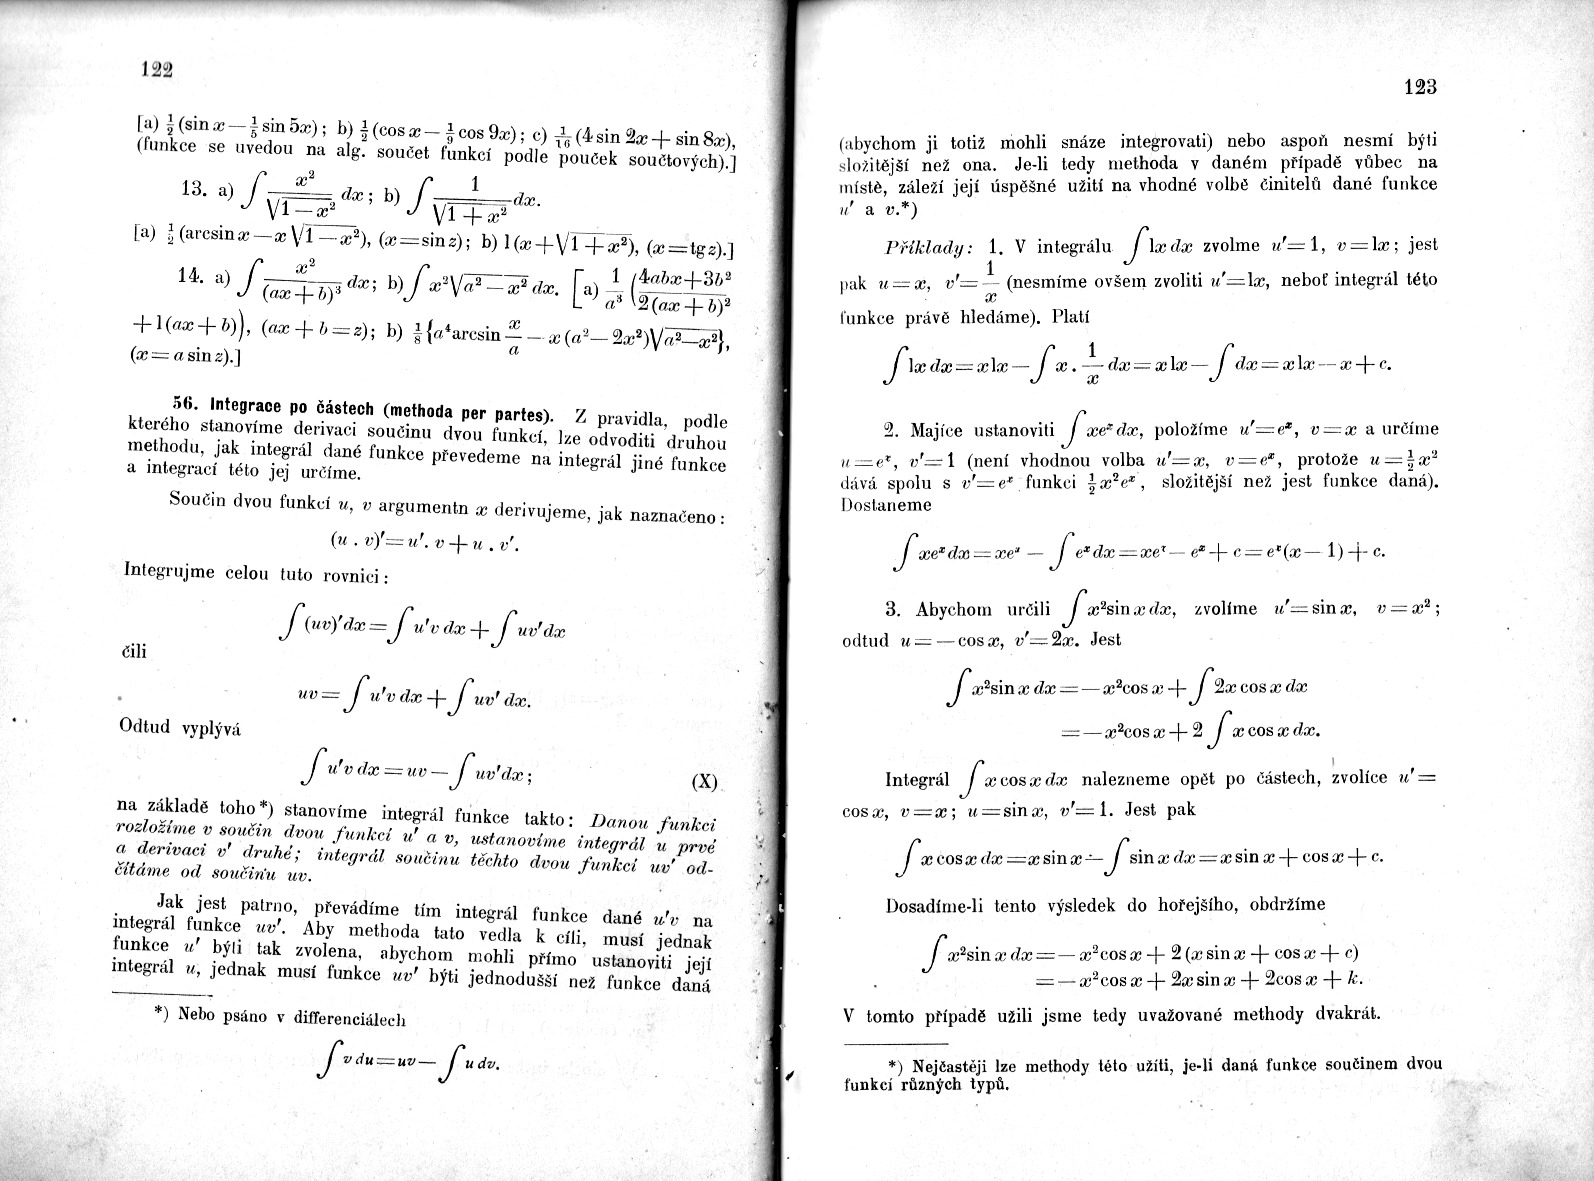 122
[a) ½ (sin x — ⅕ sin 5x) ; b) ½ (cos x — 1/9 cos 9x) ; c) 1/16 (4 sin 2x + sin 8x),
(funkce se uvedou na alg. součet funkcí podle pouček součtových).]
13. a) ∫ x²/√(1—x²) dx ; b) ∫ 1/√(1+x²) dx.
[a) ½ (arcsin x — x √(1—x²)), (x=sin z) ; b) l (x+√(1+x²)), (x=tg z).]
14. a) ∫ x²/(ax+b)³ dx ; b) ∫ x²√(a²—x²) dx. [a) 1/a³ (4abx+3b²/2(ax+b)²
+l(ax+b)), (ax+b=z) ; b) ⅛{a⁴arcsin x/a — x (a²—2x²)√(a²—x²)},
(x=a sin z).]
56. Integrace po částech (methoda per partes). Z pravidla, podle
kterého stanovíme derivaci součinu dvou funkcí, lze odvoditi druhou
methodu, jak integrál dané funkce převedeme na integrál jiné funkce
a integrací této jej určíme.
Součin dvou funkcí u, v argumentn x derivujeme, jak naznačeno :
(u . v)′=u′. v + u . v′.
Integrujme celou tuto rovnici :
∫ (uv)′dx = ∫ u′v dx + ∫ uv′dx
čili
uv = ∫ u′v dx + ∫ uv′ dx.
Odtud vyplývá
∫ u′v dx = uv — ∫ uv′dx ; (X)
na základě toho *) stanovíme integrál funkce takto : Danou funkci
rozložíme v součin dvou funkcí u′ a v, ustanovíme integrál u prvé
a derivaci v′ druhé; integrál součinu těchto dvou funkcí uv′ od-
čítáme od součinu uv.
Jak jest patrno, převádíme tím integrál funkce dané u′v na
integrál funkce uv′. Aby methoda tato vedla k cíli, musí jednak
funkce u′ býti tak zvolena, abychom mohli přímo ustanoviti její
integrál u, jednak musí funkce uv′ býti jednodušší než funkce daná
*) Nebo psáno v differenciálech
∫ v du = uv — ∫ u dv.
123
(abychom ji totiž mohli snáze integrovati) nebo aspoň nesmí býti
složitější než ona. Je-li tedy methoda v daném případě vůbec na
místě, záleží její úspěšné užití na vhodné volbě činitelů dané funkce
u′ a v.*)
Příklady: 1. V integrálu ∫ lx dx zvolme u′=1, v=lx ; jest
pak u=x, v′=1/x (nesmíme ovšem zvoliti u′=lx, neboť integrál této
funkce právě hledáme). Platí
∫ lx dx = x lx — ∫ x . 1/x dx = x lx — ∫ dx = x lx — x + c.
2. Majíce ustanoviti ∫ xeˣ dx, položíme u′=eˣ, v=x a určíme
u=eˣ, v′=1 (není vhodnou volba u′=x, v=eˣ, protože u=½x²
dává spolu s v′=eˣ funkci ½x²eˣ, složitější než jest funkce daná).
Dostaneme
∫ xeˣ dx = xeˣ — ∫ eˣ dx = xeˣ — eˣ + c = eˣ(x — 1) + c.
3. Abychom určili ∫ x²sin x dx, zvolíme u′=sin x, v=x² ;
odtud u=—cos x, v′=2x. Jest
∫ x²sin x dx = — x²cos x + ∫ 2x cos x dx
= — x²cos x + 2 ∫ x cos x dx.
Integrál ∫ x cos x dx nalezneme opět po částech, zvolíce u′=
cos x, v=x ; u=sin x, v′=1. Jest pak
∫ x cos x dx = x sin x — ∫ sin x dx = x sin x + cos x + c.
Dosadíme-li tento výsledek do hořejšího, obdržíme
∫ x²sin x dx = — x²cos x + 2 (x sin x + cos x + c)
= — x²cos x + 2x sin x + 2cos x + k.
V tomto případě užili jsme tedy uvažované methody dvakrát.
*) Nejčastěji lze methody této užíti, je-li daná funkce součinem dvou
funkcí různých typů.